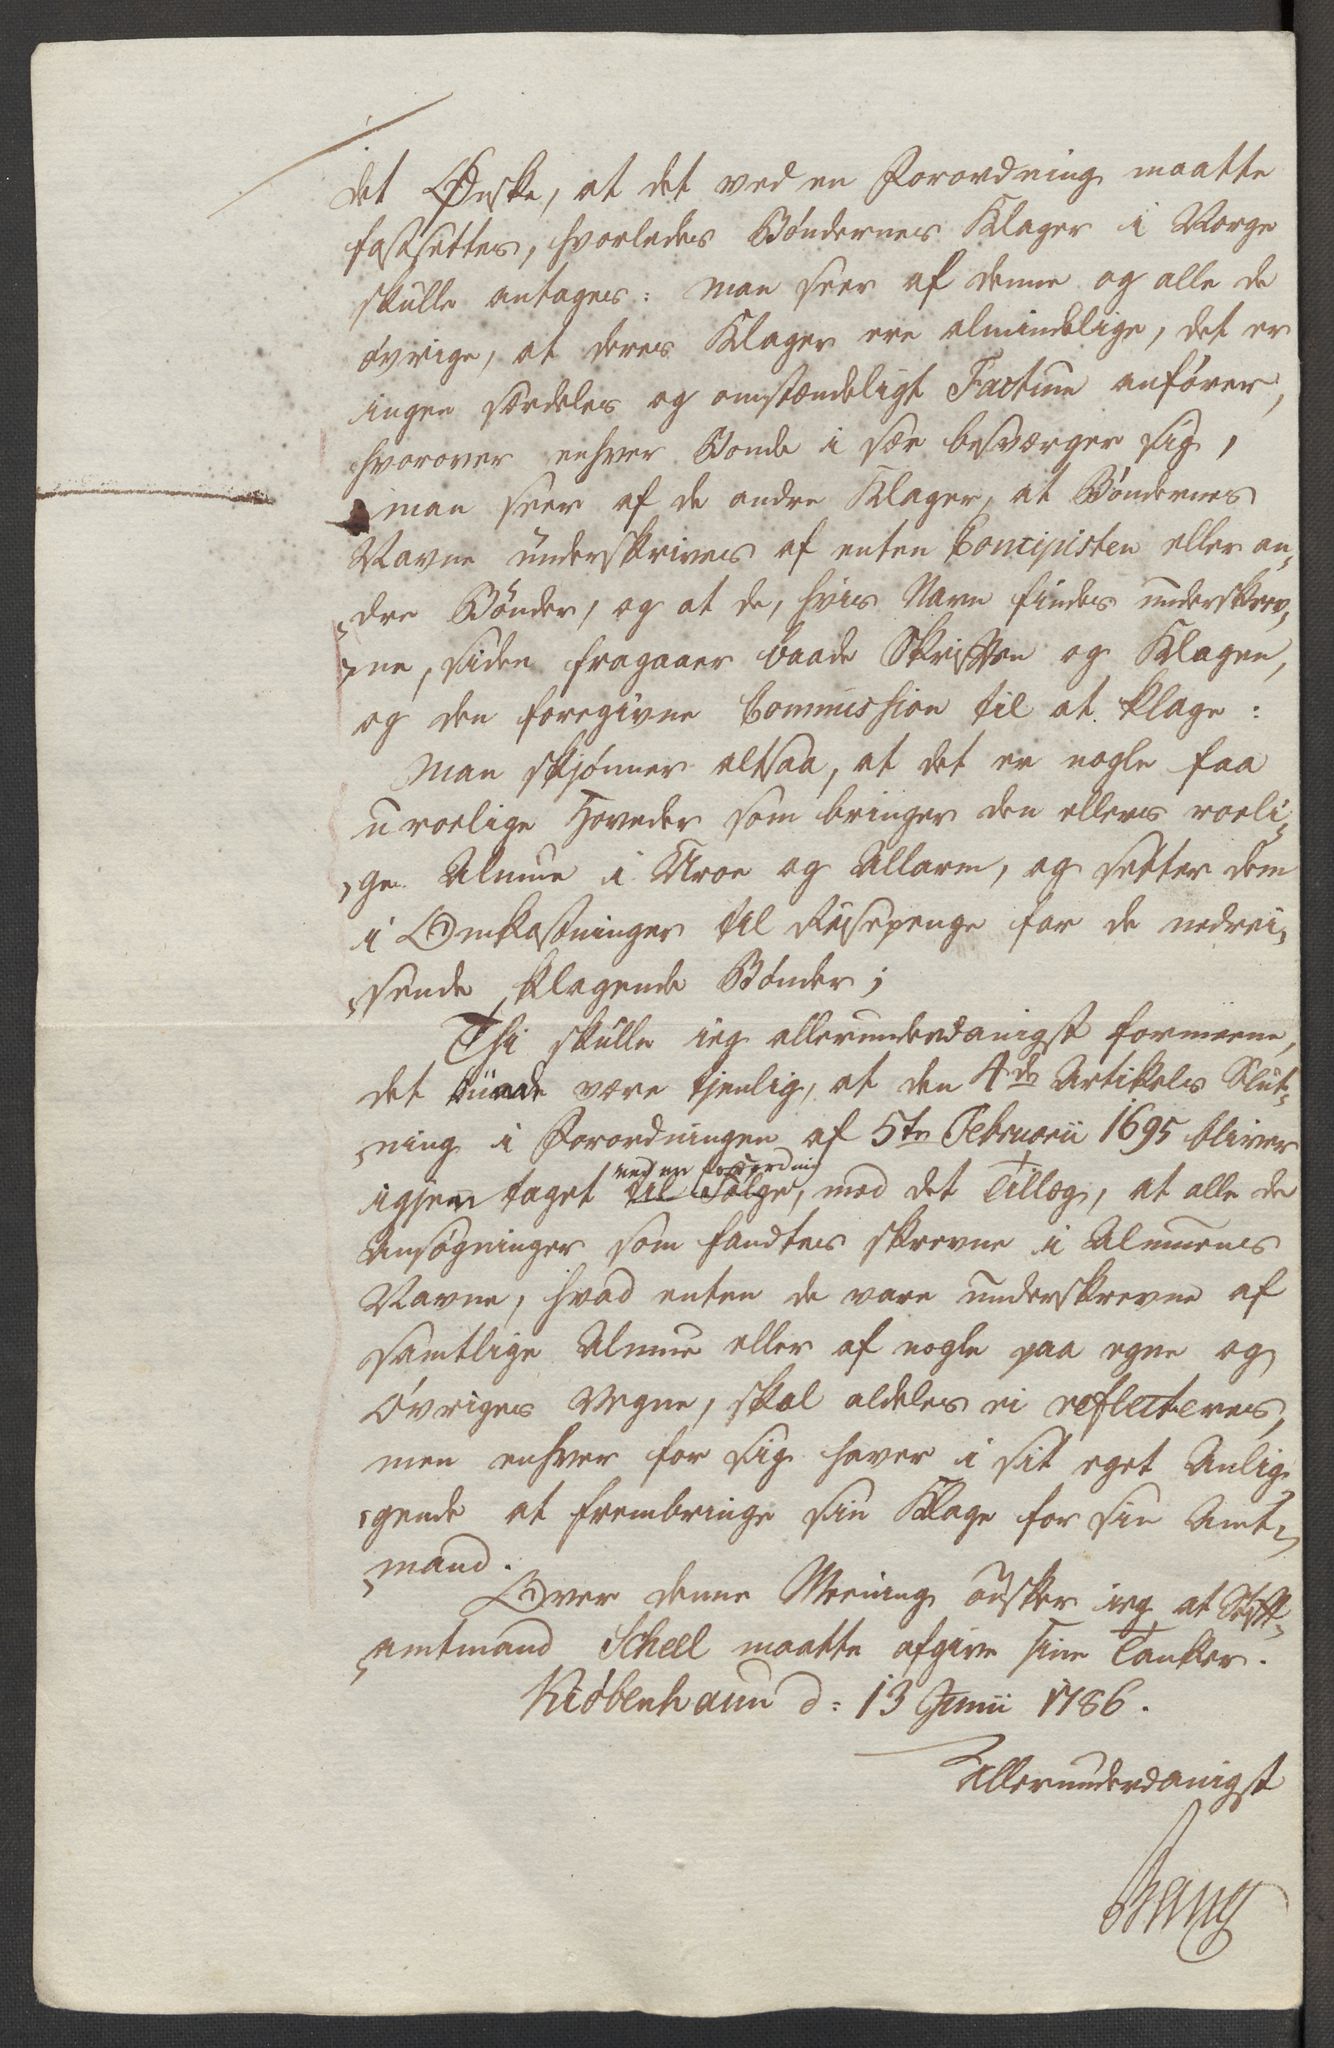 det Ønske, at det ved en Forordning maatte
fastsættes, hvorledes Bøndernes Klager i Norge
skulle antages: man seer af denne og alle de
øvrige, at deres Klager ere almindelige, det er
ingen særdeles og omstændeligt Factum anfører,
hvorover enhver Bonde i sær besværger sig,
man seer af de andre Klager, at Bøndernes
Navne underskrives af enten Concipisten eller an-
dre Bønder, og at de, hvis Navn findes underskrev-
ne, siden fragaaer baade Skriften og Klagen,
og den foregivne Commission til at klage:
Man skjønner altsaa, at det er nogle faa
uroelige Hoveder som bringer den ellers roeli-
ge Almue i Uroe og Allarm, og sætter dem
i Omkastninger til Reisepenge for de nedrei-
sende klagende Bønder;
Thi skulle ieg allerunderdanigst formeene,
det kunde være tjenlig, at den 4de Artikels Slut-
ning i Forordningen af 5te Februarii 1695 bliver
ved en Forordning
igjen taget til Følge, med det Tillæg, at alle de
Ansøgninger som fandtes skrevne i Almuens
Navne, hvad enten de vare underskrevne af
samtlige Almue eller af nogle paa egne og
øvriges Vegne, skal aldeles ei reflecteres,
men enhver for sig haver i sit eget Anlig-
gende at frembringe sin Klage for sin Amt-
mand.
Over denne Meening ønsker ieg at Stift-
amtmand Scheel maatte afgive sine Tanker.
Kiøbenhavn d: 13 Junii 1786.
Allerunderdanigst
Bang